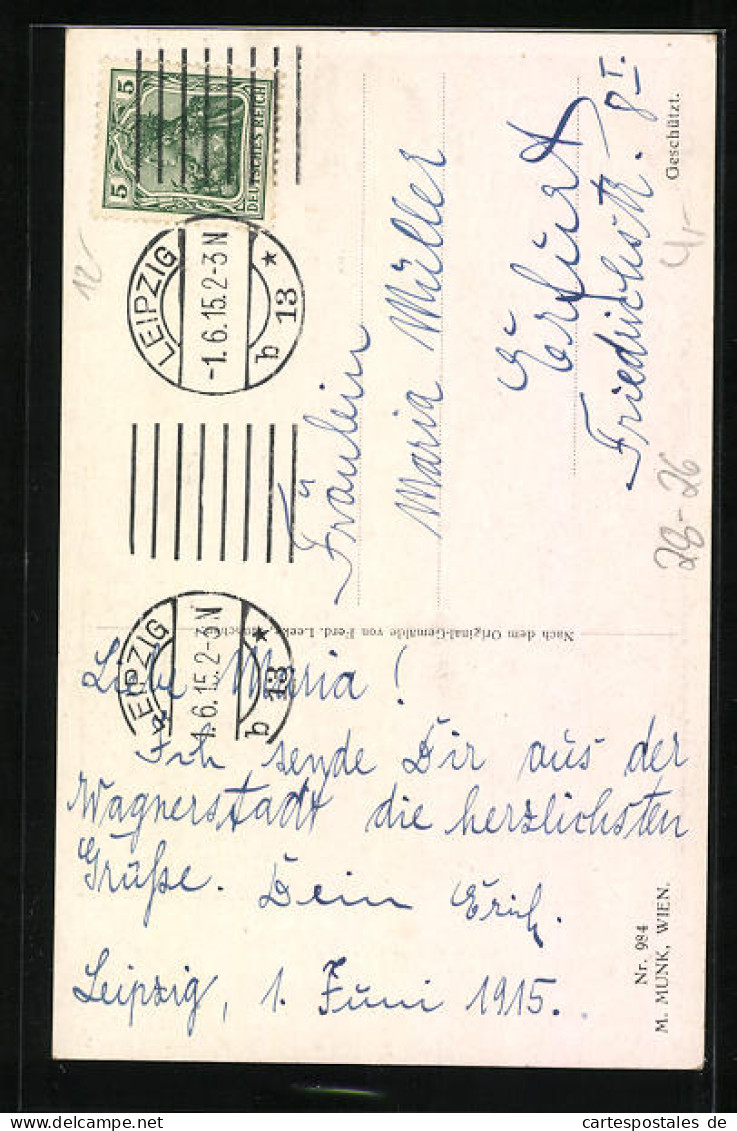 5 5
DEUTSCHES REICH
LEIPZIG
-1.6.15.2-3N
b 13 *
LEIPZIG
-1.6.15.2-3N
b 13 *
12.-
Fräulein
Maria Müller
Erfurt
Friedrichstr. 8 I.
Geschützt.
4,-
28-26
Nach dem Original-Gemälde von Ferd. Leeke
Liebe Maria!
Ich sende Dir aus der
Wagnerstadt die herzlichsten
Grüße. Dein Erich.
Leipzig, 1. Juni 1915.
Nr. 984
M. MUNK, WIEN.
cartespostales de